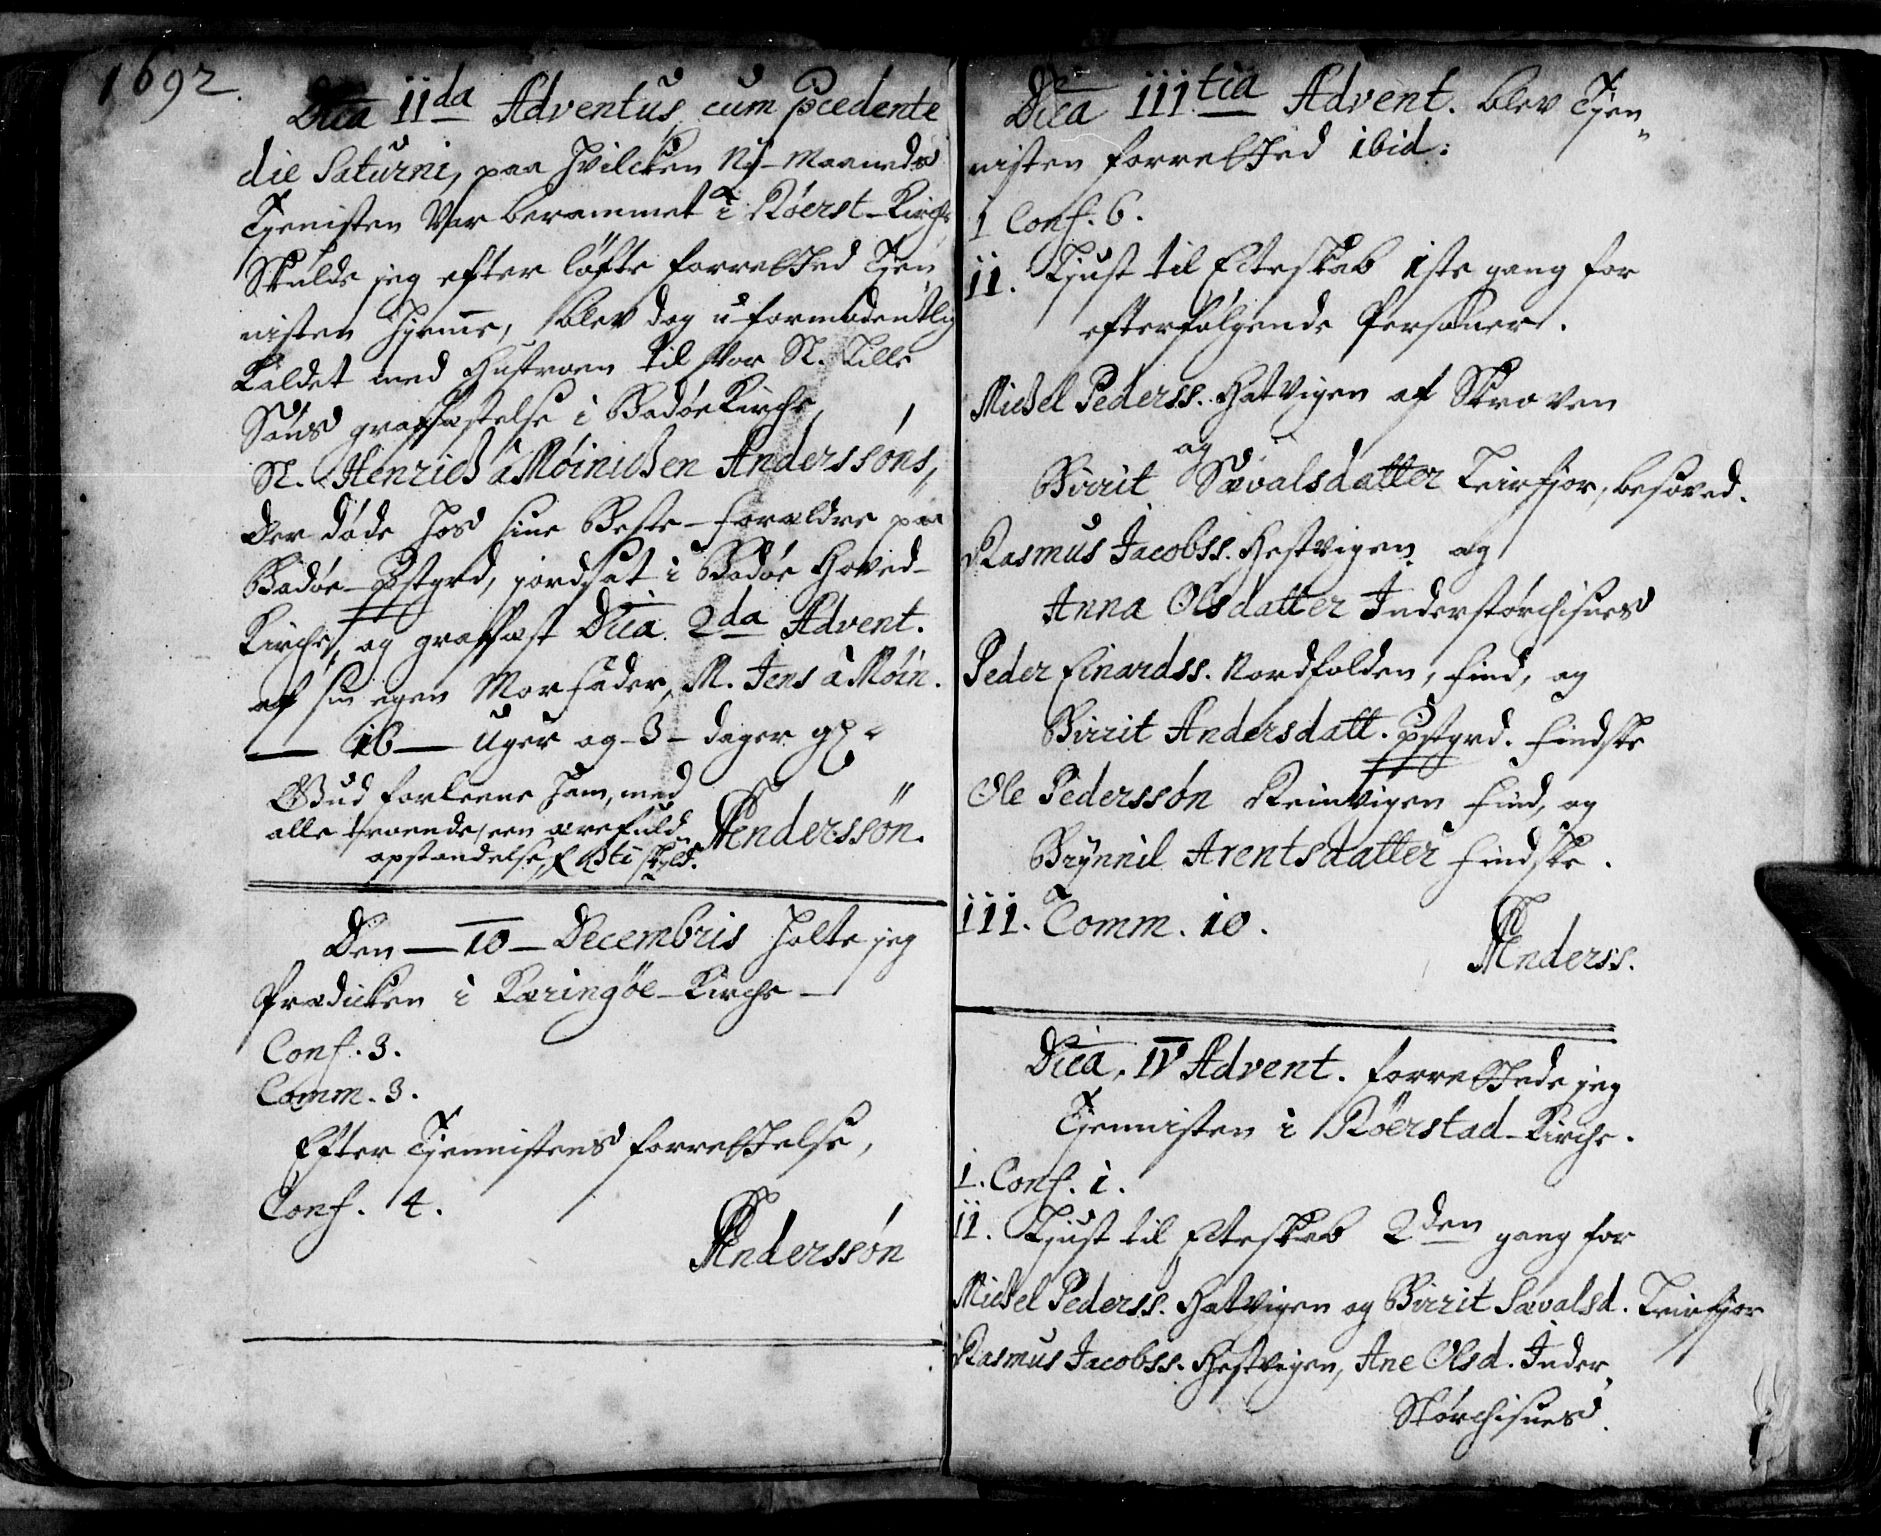 1692.
Dn̄ca IIda Adventus cum pcedente
die Saturni, paa hvilcken Ny-Maaneds
Tjenisten Var berammet i Röerst-Kirche
Skulde jeg efter löfte forretted Tjen
nisten hjem̄e, blev dog u-formodentlig
Kaldet med Hustroen til Vor Sl. Lille
Söns graffæstelse i Bodöe Kirche,
Sl. Henrich à Möinichen Anderssöns,
der döde hos sine Beste-forældre paa
Bodöe-Pstgrd, jordsat i Bodöe Hoved-
Kirche, og graffæst Dn̄ca. 2da Advent.
af sin egen Morfader, M. Jens à Möin.
— 16 — Uger og - 3 - dager gl.
Gud forleene ham, med
alle troende, een ærefuld
opstandelse,
Anderssön.
Den — 10 — Decembris holte jeg
Prædicken i Kæringöe-Kirche —
Conf. 3.
Comm. 3.
Efter Tjennistens forrettelse,
Conf. 4.
Anderssön
Dn̄ca IIItia Advent. blev Tjen
nisten forretted ibid:
I Conf. 6.
II. Liust til Ecteskab 1ste gang for
efterfölgende Personer.
Michel Pederss. Hatvigen af Skroven
og
Birrit Sævalsdatter Leirfjor, besöved.
Rasmus Jacobss. Hestvigen og
Anna Olsdatter Inderstörchisnes
Peder Einardss. Nordfolden, find, og
Birrit Andersdatt. Pstgrd. findske
Ole Pederssön Reinvigen find, og
Brÿnnil Arentsdatter findske.
III. Comm. 10.
Anderss.
Dn̄ca. IV Advent. forrettede jeg
Tjennisten i Röerstad-Kirche.
I. Conf. 1.
II. Liust til Ecteskab 2den gang for
Michel Pederss. Hatvigen og Birrit Sævalsd. Leirfjor
Rasmus Jacobss. Hestvigen, Ane Olsd. Inder
Störchisnes.